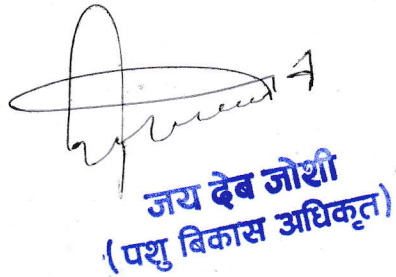 जय देब जोशी
(पशु बिकास अधिकृत)